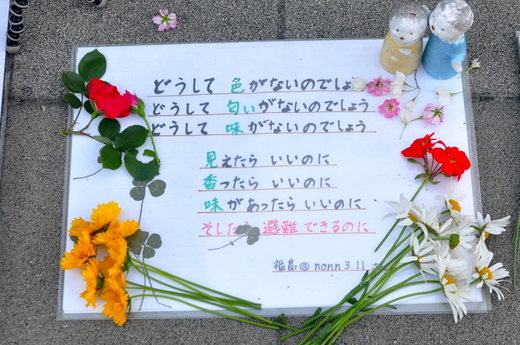 どうして 色がないのでしょ
どうして 匂いがないのでしょう
どうして 味がないのでしょう
見えたら いいのに
香ったら いいのに
味があったら いいのに
そした 避難できるのに
福島@nonn311